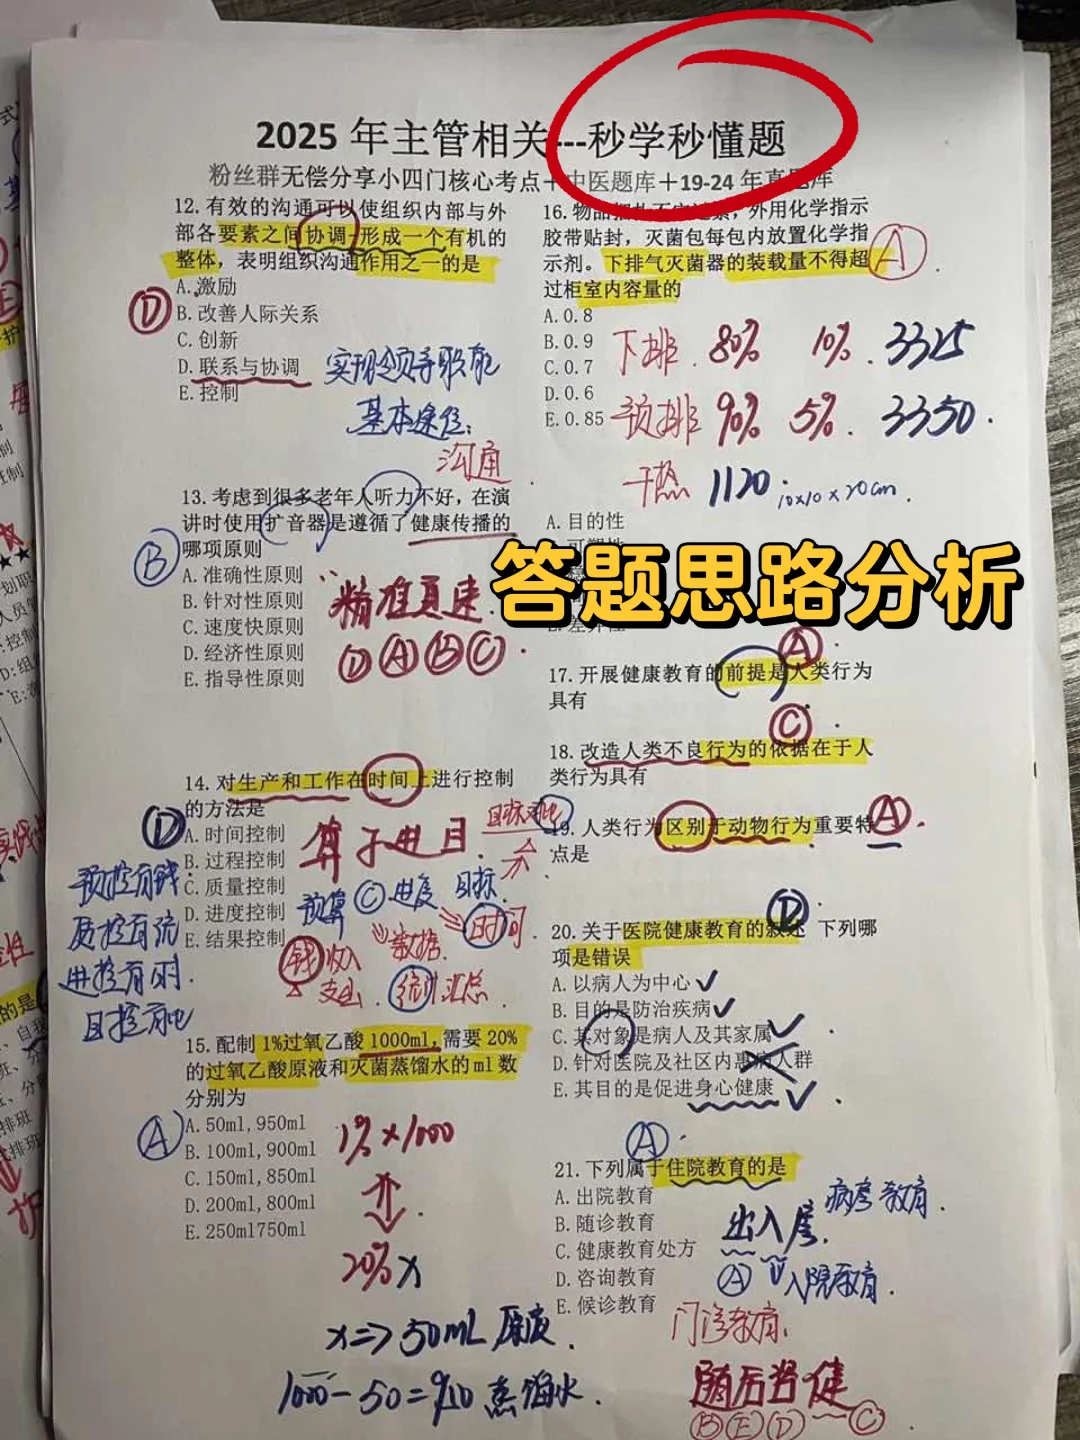 2025 年主管相关---秒学秒懂题
粉丝群无偿分享小四门核心考点＋中医题库＋19-24 年真题库
12. 有效的沟通可以使组织内部与外
部各要素之间协调-形成一个有机的
整体，表明组织沟通作用之一的是
A. 激励
D
B. 改善人际关系
C. 创新
D. 联系与协调
E. 控制
实现领导职能
基本途径:
沟通
13. 考虑到很多老年人听力不好，在演
讲时使用扩音器是遵循了健康传播的
哪项原则
B
A. 准确性原则
B. 针对性原则
C. 速度快原则
D. 经济性原则
E. 指导性原则
精准真速
D A B C
14. 对生产和工作在时间上进行控制
的方法是
D
A. 时间控制
B. 过程控制
C. 质量控制
D. 进度控制
E. 结果控制
预控有钱
质控有流
进控有时
目控有比
算于进目
目标对比
预算 C 进度 目标
钱 收入
支出
数据
时间
统计汇总
15. 配制 1%过氧乙酸 1000ml，需要 20%
的过氧乙酸原液和灭菌蒸馏水的 ml 数
分别为
A
A. 50ml,950ml
B. 100ml,900ml
C. 150ml,850ml
D. 200ml,800ml
E. 250ml750ml
1% x 1000
20% x
x => 50mL 原液
1000-50=950 蒸馏水
16. 物品捆扎不宜过紧，外用化学指示
胶带贴封，灭菌包每包内放置化学指
示剂。下排气灭菌器的装载量不得超
过柜室内容量的
A
A. 0.8
B. 0.9
C. 0.7
D. 0.6
E. 0.85
下排 80% 10% 3325
预排 90% 5% 3350
干热 1120 10x10x20cm
A. 目的性
答题思路分析
E. 差异性
A
17. 开展健康教育的前提是人类行为
具有
C
18. 改造人类不良行为的依据在于人
类行为具有
19. 人类行为区别于动物行为重要特
A
点是
D
20. 关于医院健康教育的叙述 下列哪
项是错误
A. 以病人为中心
B. 目的是防治疾病
C. 其对象是病人及其家属
D. 针对医院及社区内患病人群
E. 其目的是促进身心健康
A
21. 下列属于住院教育的是
A. 出院教育
B. 随诊教育
C. 健康教育处方
D. 咨询教育
E. 候诊教育
病房教育
出入房
A 入院教育
门诊教育
随后咨健
B E D C